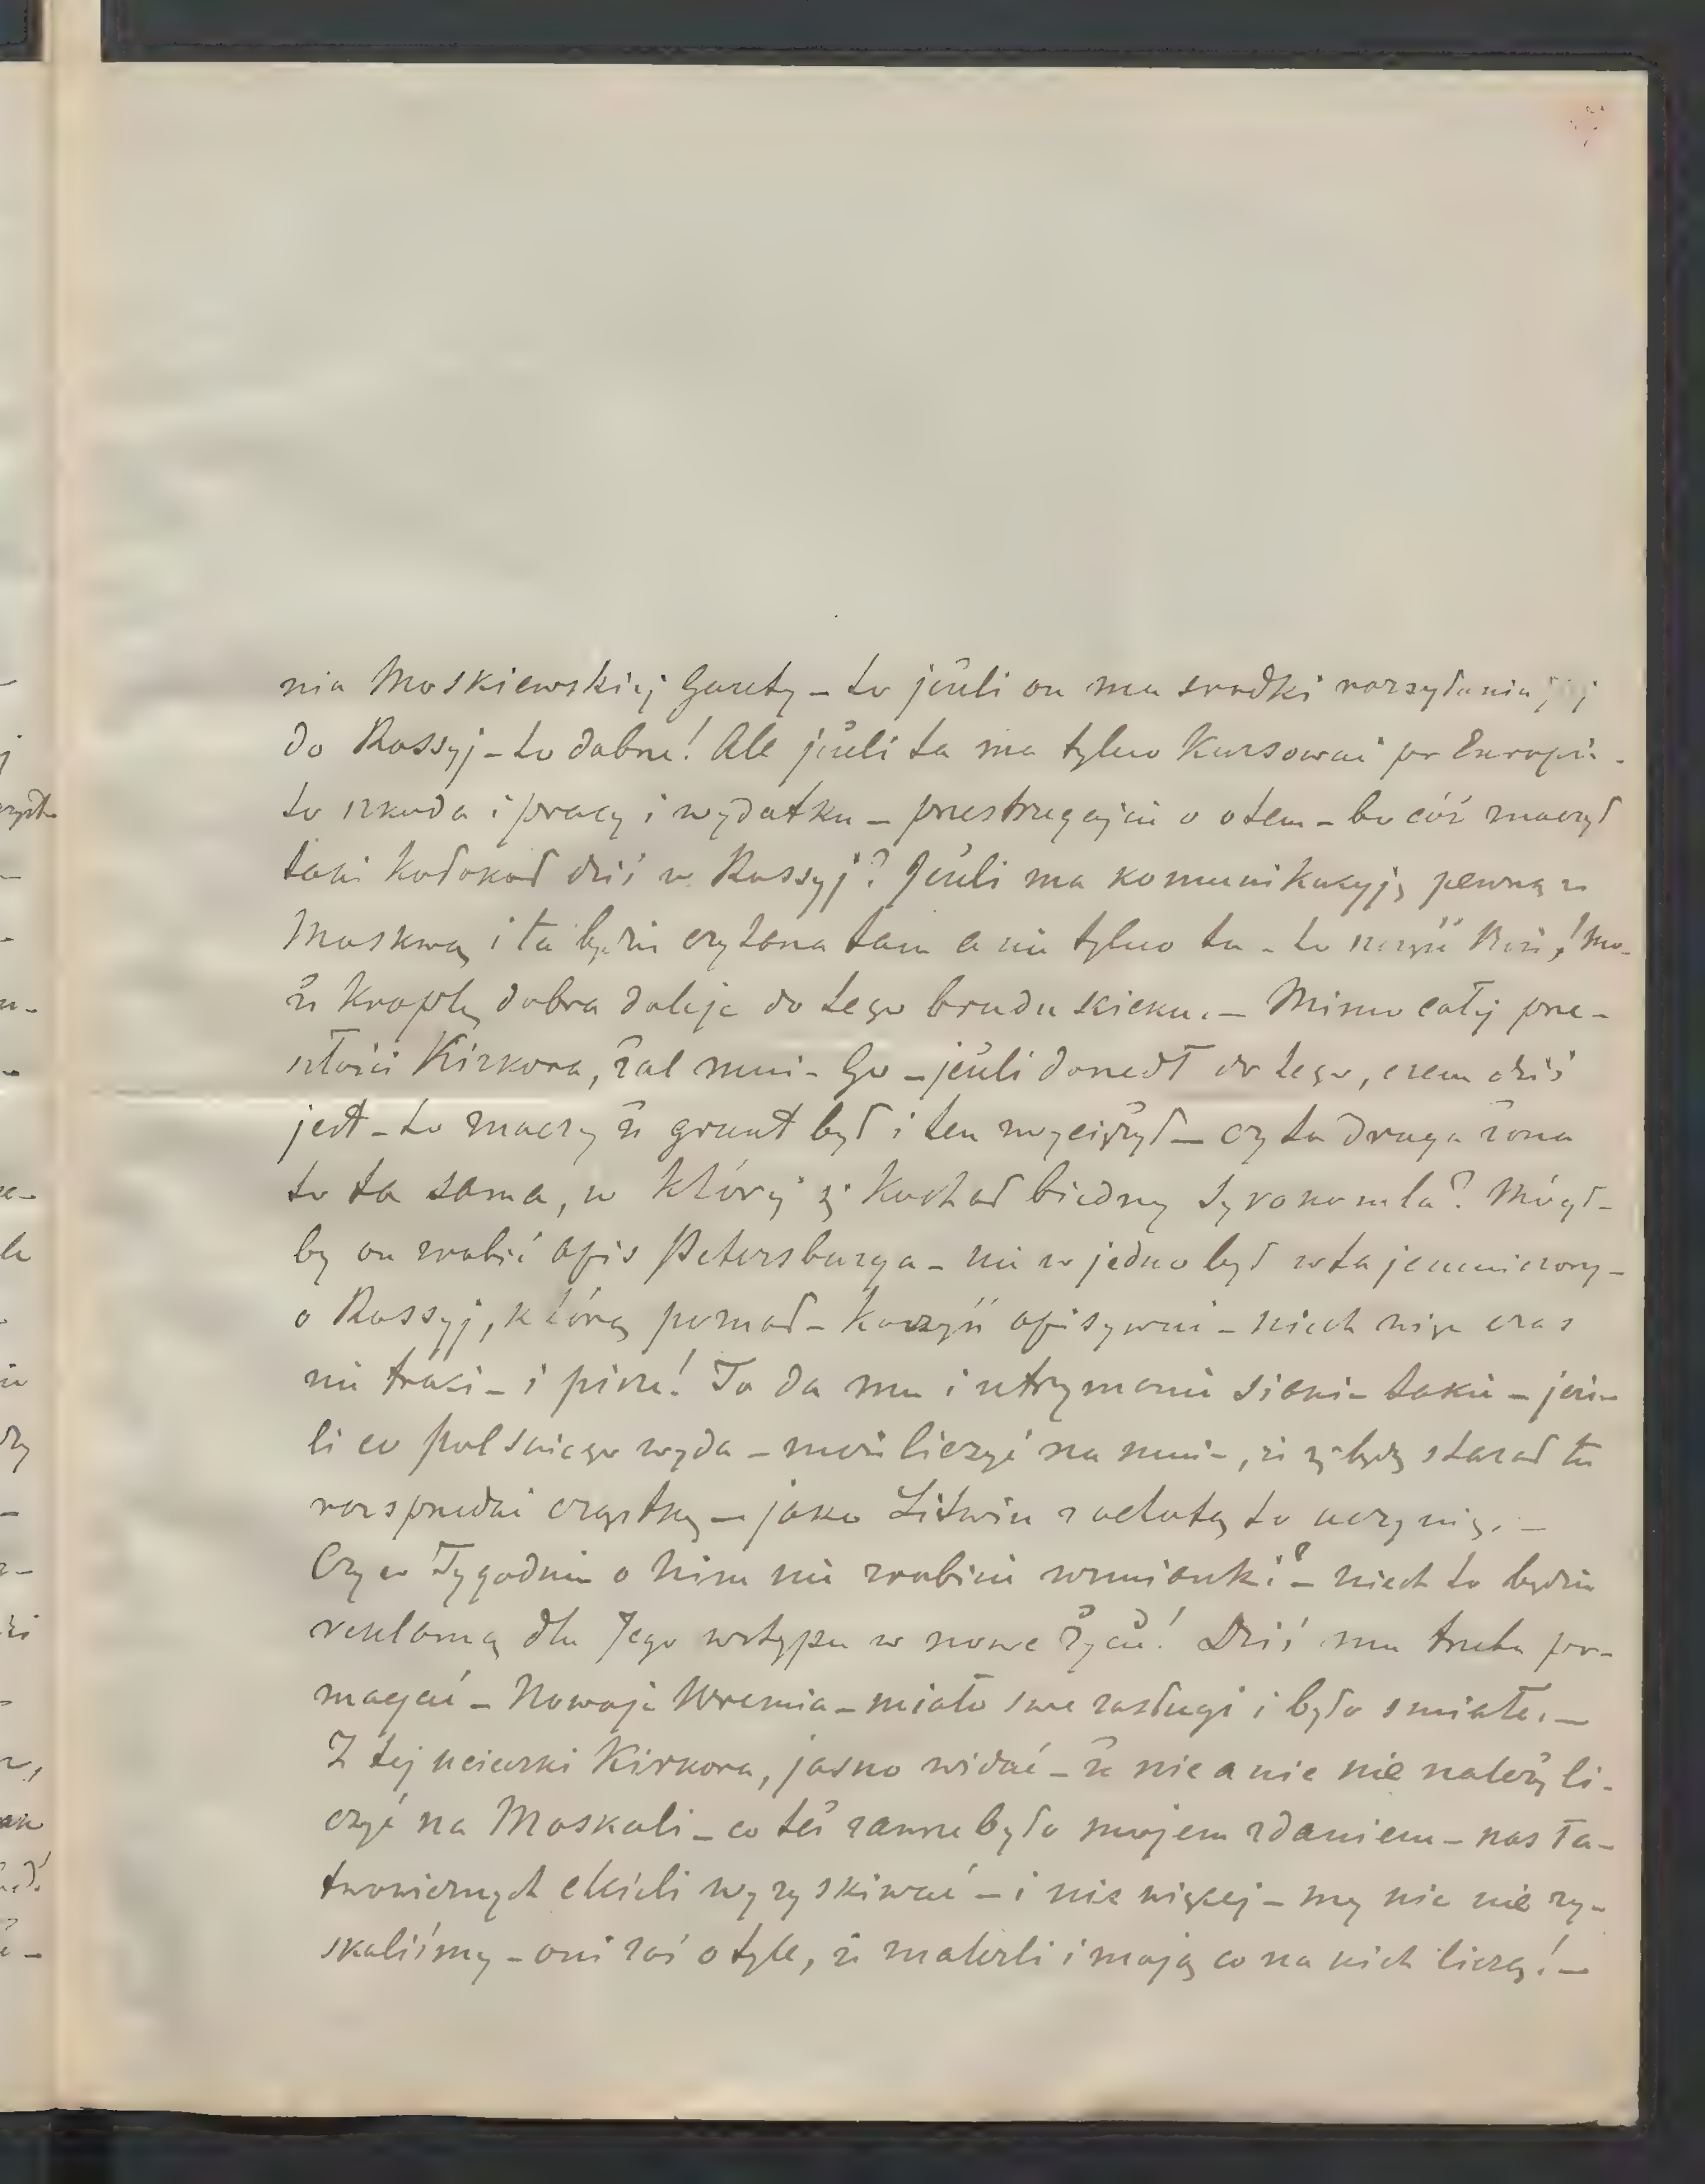 nia Moskiewskiej Gazety – to jeżeli on ma srodki rozsyłania jej
do Rossyj – to dobrze! Ale jeżeli ta ma tylko kursować po Europie –
to szkoda i pracy i wydatku – przestrzegajcie o otem – bo cóż znaczył
taki Kołokoł dziś w Rossyj? Jeżeli ma komunikacyję pewną z
Moskwą i ta będzie czytana tam a nie tylko tu – to szczęść Boże! Mo-
że kroplę dobra doleje do tego brudu scieku. – Mimo całej prze-
szłości Kirkora, żal mnie Go – jeżeli doszedł do tego, czem dziś
jest – to znaczy że grunt był i ten zwyciężył – czy ta druga żona
to ta sama, w której się kochał biedny Syrokomla? Mógł-
by on zrobić opis Petersburga – nie w jedno był wtajemniczony –
o Rossyj, którą poznał – kończyć opisywać – niech więc czas
nie traci – i pisze! To da mu i utrzymanie jakie takie – jeże-
li co polskiego wyda – może liczyć na mnie, że się będę starał tu
rozsprzedać cząstkę – jako Litwin z ochotą to uczynię. –
Czy w Tygodniu o nim nie zrobicie wzmianki? – niech to będzie
reklamą dla Jego wstępu w nowe życie! Dziś mu trzeba po-
magać – Nowoje Wremia – miało swe zasługi i było smiałe. –
Z tej ucieczki Kirkora, jasno widać – że nic a nic nie należy li-
czyć na Moskali – co też zawsze było mojem zdaniem – nas ła-
twowiernych chcieli wyzyskiwać – i nic więcej – my nic nie zy-
skaliśmy – oni zaś o tyle, że znaleźli i mają co na nich liczą! –